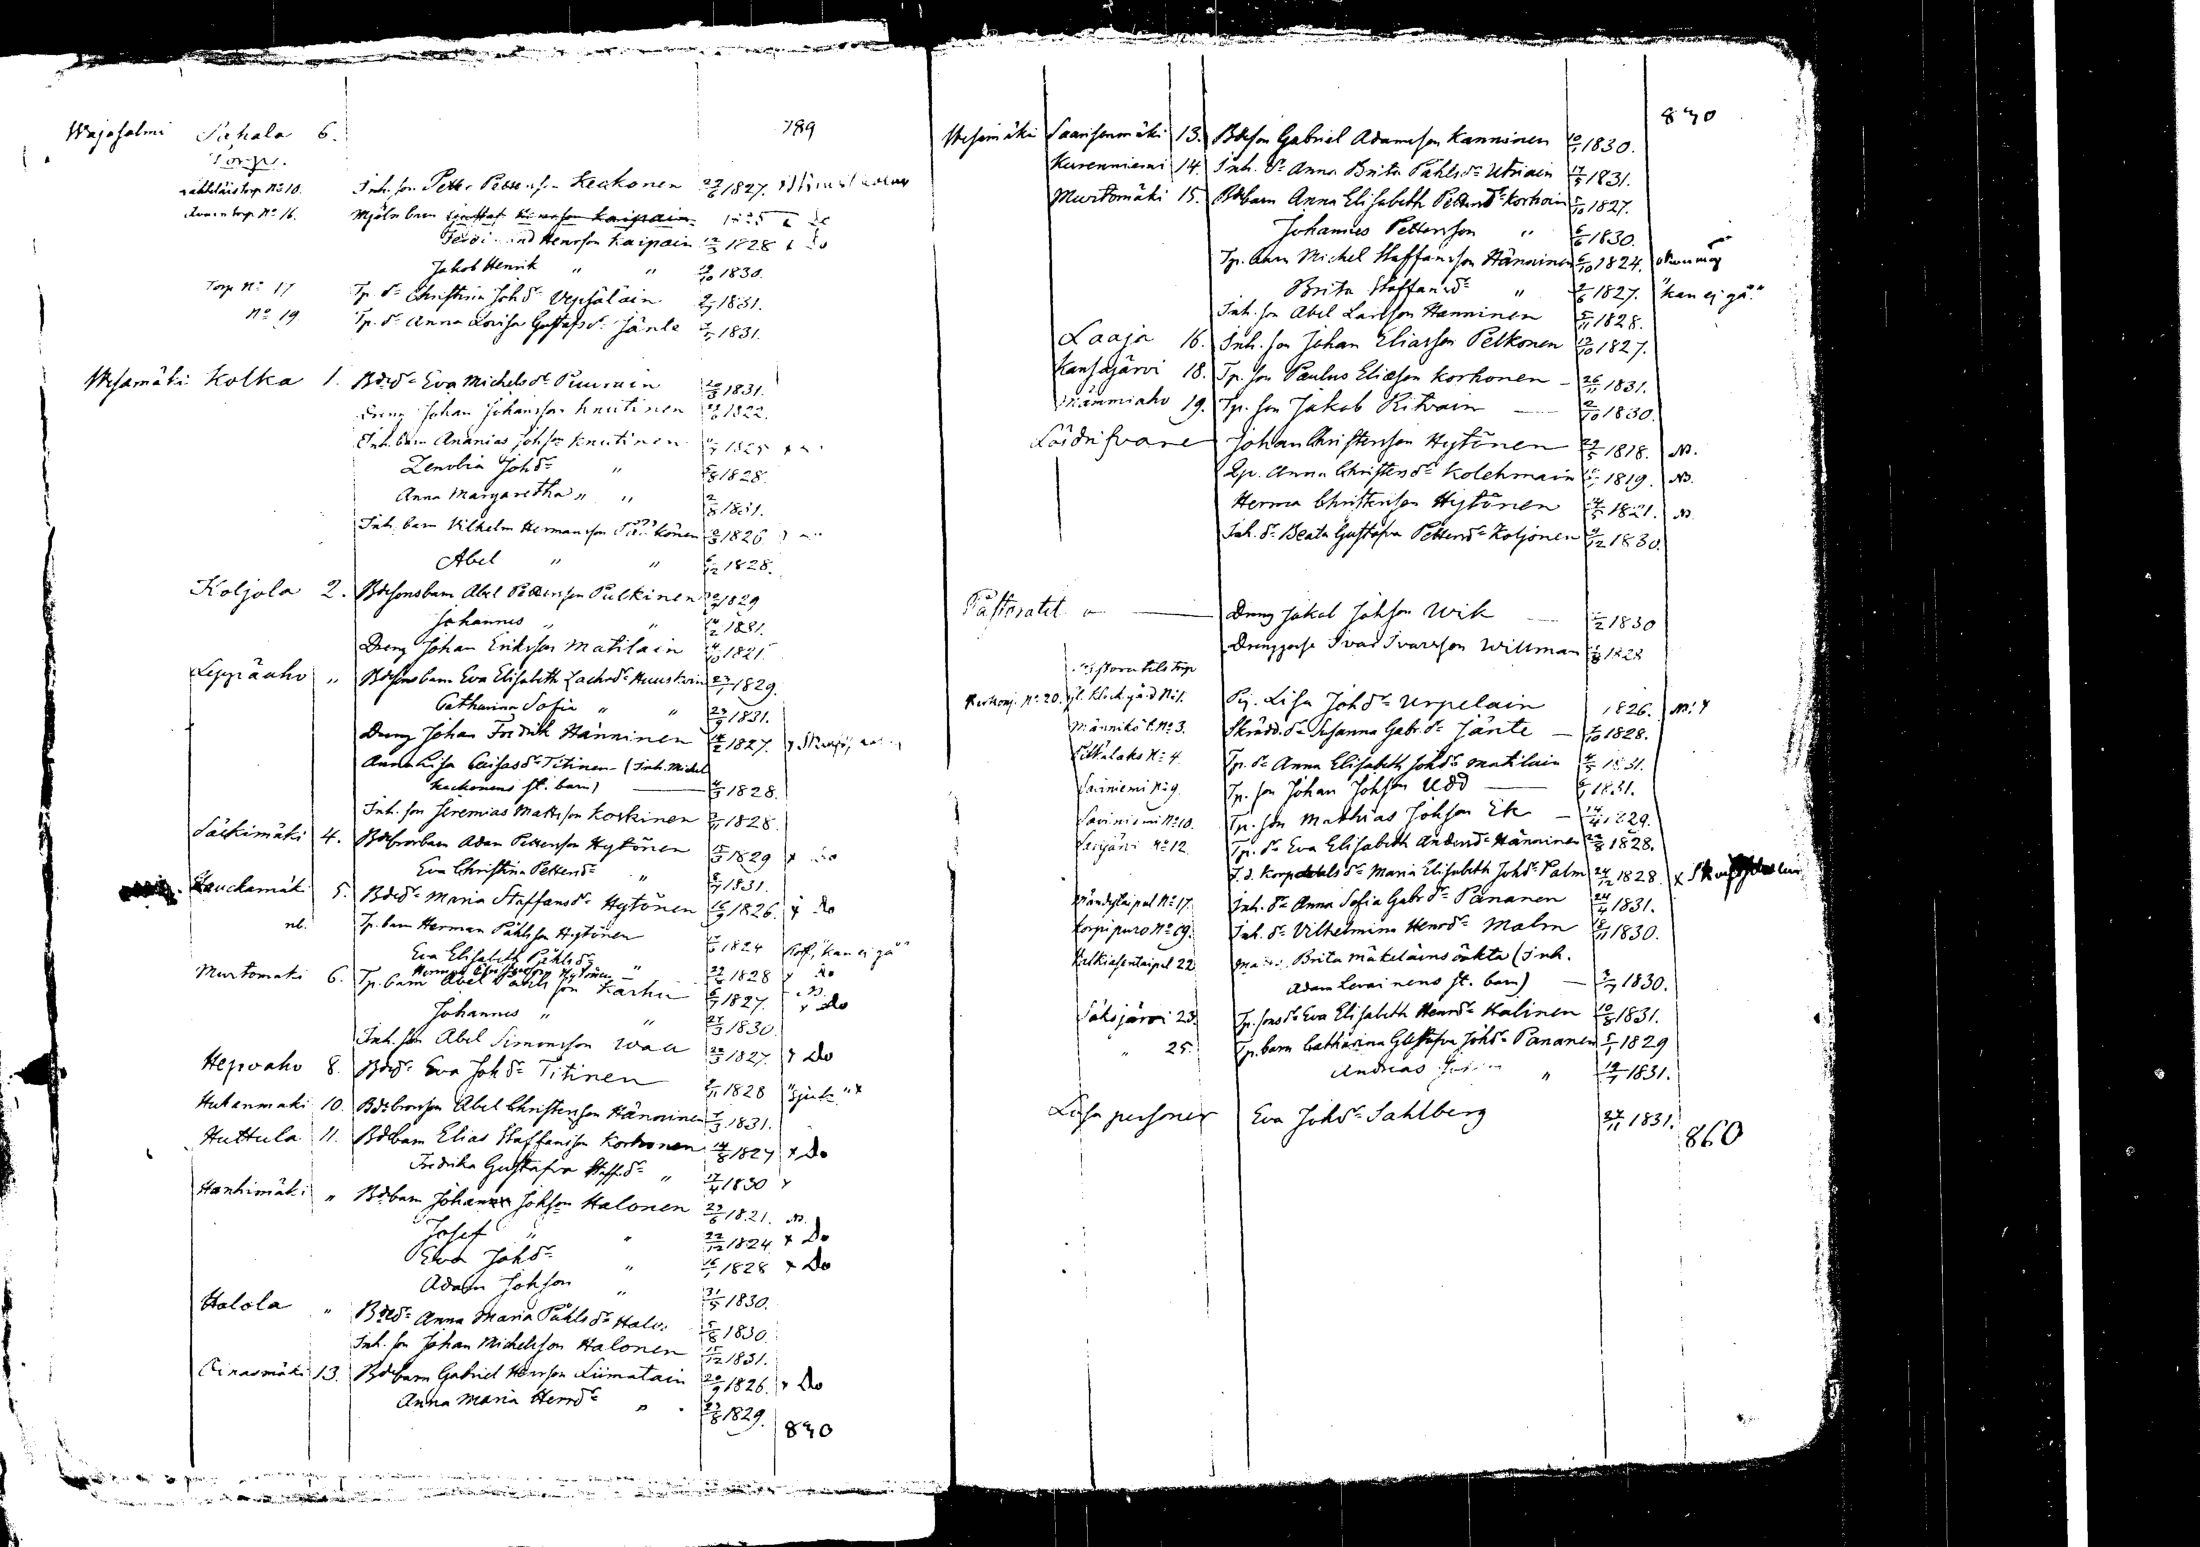 789
Wajosalmi Pahala 6.
Torp.
torp. No 10. Inh. son Petter Petterson Keckonen 1827.
torp No 16. Mjöln. barn Gustaf Henrson Kaipain 1825 Do
Ferdinand Henrson Kaipain 1828 Do
Jakob Henrik " " 19/10 1830.
Torp No 17 Tp. dr Christina Johdr Vepsäläin 1831.
No 19 Tp. dr Anna Lovisa Gustafsdr Jänte 1831.
Wesamäki Kolka 1. Bdedr Eva Michelsdr Puurain 20/3 1831.
Dreng Johan Johansson Knutinen 1822.
Inh. barn Ananias Johson Knutinen 1825
Zenobia Johdr " 1828.
Anna Margaretha " " 2/8 1831.
Inh. barn Vilhelm Hermansson 1826
Abel " " 6/12 1828.
Koljola 2. Bdesonsbarn Abel Pettersson Pulkinen 1829
Johannes " " 14/2 1831.
Dreng Johan Eriksson Matilain 1821
Leppäaho " Bdesonsbarn Eva Elisabeth Zachrdr Huuskoin 1829.
Catharina Sofia " " 23/9 1831.
Dreng Johan Fredrik Hänninen 14/2 1827.
Anna Lisa Caisasdr Titinen (Inh. Michel
Keckonens st. barn) 4/3 1828.
Inh. son Jeremias Matsson Koskinen 2/11 1828.
Säckimäki 4. Bdebrorbarn Adam Pettersson Hytönen 15/3 1829 x Do
Eva Christina Pettersdr " 1831.
Hauckamäki 5. Bdedr Maria Staffansdr Hytönen 16/9 1826. x Do
nb. Tp. barn Herman Påhlsson Hytönen 1824 "kan ei gå"
Eva Elisabeth Påhlsdr " 1828 x Do
Herman Christersson Hytönen
Murtomäki 6. Tp. barn Abel Påhlsson Karhu 1827. x Do
Johannes " " 27/3 1830.
Inh. son Abel Simonsson Waa 22/3 1827. x Do
Hepoaho 8. Bdedr Eva Johdr Titinen 2/11 1828 "sjuk" x
Hukanmäki 10. Bdebrorson Abel Christersson Hänninen 1831.
Huttula 11. Bdebarn Elias Staffansson Korhonen 14/8 1827 x Do
Fredrika Gustafva Staffdr " 17/4 1830 x
Hanhimäki " Bdebarn Johannes Johson Halonen 23/6 1821.
Josef " " 22/12 1824 x Do
Eva Johdr " 16/1 1828 x Do
Adam Johson " 31/5 1830.
Halola " Bdedr Anna Maria Påhlsdr Halo 5/8 1830.
Inh. son Johan Michelsson Halonen 15/12 1831.
Oinasmäki 13. Bdebarn Gabriel Henrson Liimatain 20/9 1826. x Do
Anna Maria Henrdr " 23/8 1829.
840
840
Wesamäki Saarisenmäki 13. Bdeson Gabriel Adamsson Kanninen 1830.
Kurenniemi 14. Inh. dr Anna Brita Påhlsdr Utriain 17/5 1831.
Murtomäki 15. Bdebarn Anna Elisabeth Pettersdr Korhoin 5/10 1827.
Johannes Pettersson " 6/6 1830.
Tp. barn Michel Staffansson Hänninen 6/10 1824.
Brita Staffansdr " 2/6 1827. "kan ej gå."
Inh. son Abel Larsson Hänninen 5/11 1828.
Laaja 16. Inh. son Johan Eliasson Pelkonen 12/10 1827.
Kansajärvi 18. Tp. son Paulus Eliæson Korhonen 26/11 1831.
Mämmiaho 19. Tp. son Jakob Ritvain 2/10 1830.
Löödrifvare Johan Christersson Hytönen 29/5 1818. nb.
Pp. Anna Christersdr Kolehmain 1819. nb.
Herma Christersson Hytönen 14/5 1821. nb.
Inh. dr Beata Gustafva Pettersdr Koljonen 9/12 1830.
Pastoratet Dreng Jakob Johson Wik 1/2 1830
Drenggosse Ivar Ivarsson Willman 1/8 1828
Pastoratets torp
No. 20. gl. Klock. gård No 1. Pig. Lisa Johdr Urpelain 1826.
Männikö t. No 3. Skrädd. dr Susanna Gabr. dr Jänte 1828.
Pitkälaks No 4. Tp. dr Anna Elisabeth Johdr Matilain 4/5 1831.
Saviniemi No 9. Tp. son Johan Johson Udd 1831.
Saviniemi No 10. Tp. son Mathias Johson Ek 14/4 1829.
No 12. Tp. dr Eva Elisabeth Andersdr Hänninen 22/8 1828.
F. d. Korpralsdr Maria Elisabeth Johdr Palm 24/12 1828. x
No 17. Inh. dr Anna Sofia Gabr dr Pananen 24/4 1831.
Korpipuro No 19. Inh. dr Vilhelmina Henrdr Malm 18/11 1830.
22 Brita Mäkeläins oäkta (Inh.
Adam Levainens st. barn) 1830.
Säksjärvi 23. Tp. sons dr Eva Elisabeth Henrdr Kalinen 10/8 1831.
" 25. Tp. barn Catharina Gustafva Johdr Pananen 5/1 1829
Andreas " 19/7 1831.
Lösa personer Eva Johdr Sahlberg 27/11 1831.
860